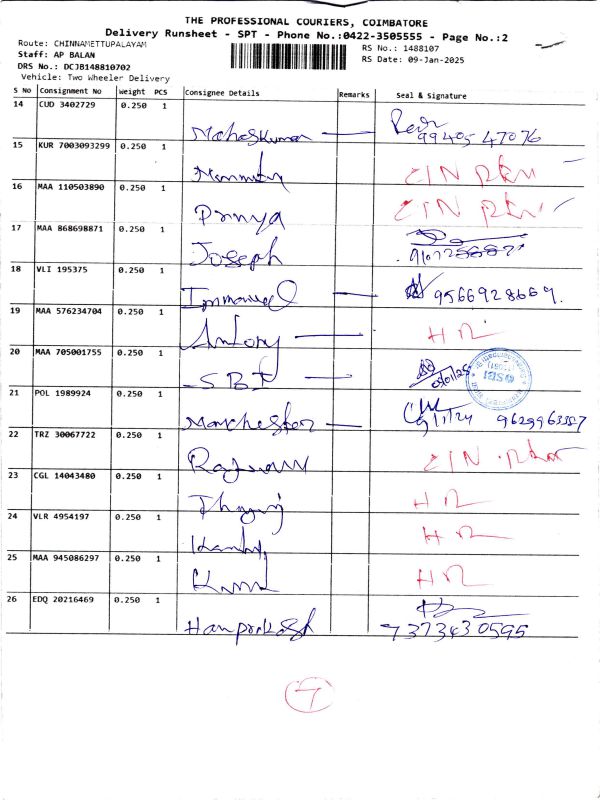 THE PROFESSIONAL COURIERS, COIMBATORE
Delivery Runsheet - SPT - Phone No.:0422-3505555 - Page No.:2
Route: CHINNAMETTUPALAYAM
RS No.: 1488107
Staff: AP BALAN
RS Date: 09-Jan-2025
DRS No.: DCJB148810702
Vehicle: Two Wheeler Delivery
S No Consignment No Weight PCS Consignee Details Remarks Seal & Signature
14 CUD 3402729 0.250 1
Maheskumar 99405 47076
15 KUR 7003093299 0.250 1
16 MAA 110503890 0.250 1
Prinya
17 MAA 868698871 0.250 1
Joseph
18 VLI 195375 0.250 1
Immanuel 9566928669.
19 MAA 576234704 0.250 1
Antony H R
20 MAA 705001755 0.250 1
SBI 09/01/25 SBI
21 POL 1989924 0.250 1
Manchester 9/1/24 9629963357
22 TRZ 30067722 0.250 1
23 CGL 14043480 0.250 1
H R
24 VLR 4954197 0.250 1
H R
25 MAA 945086297 0.250 1
H R
26 EDQ 20216469 0.250 1
Hariprakash 7373430595
7